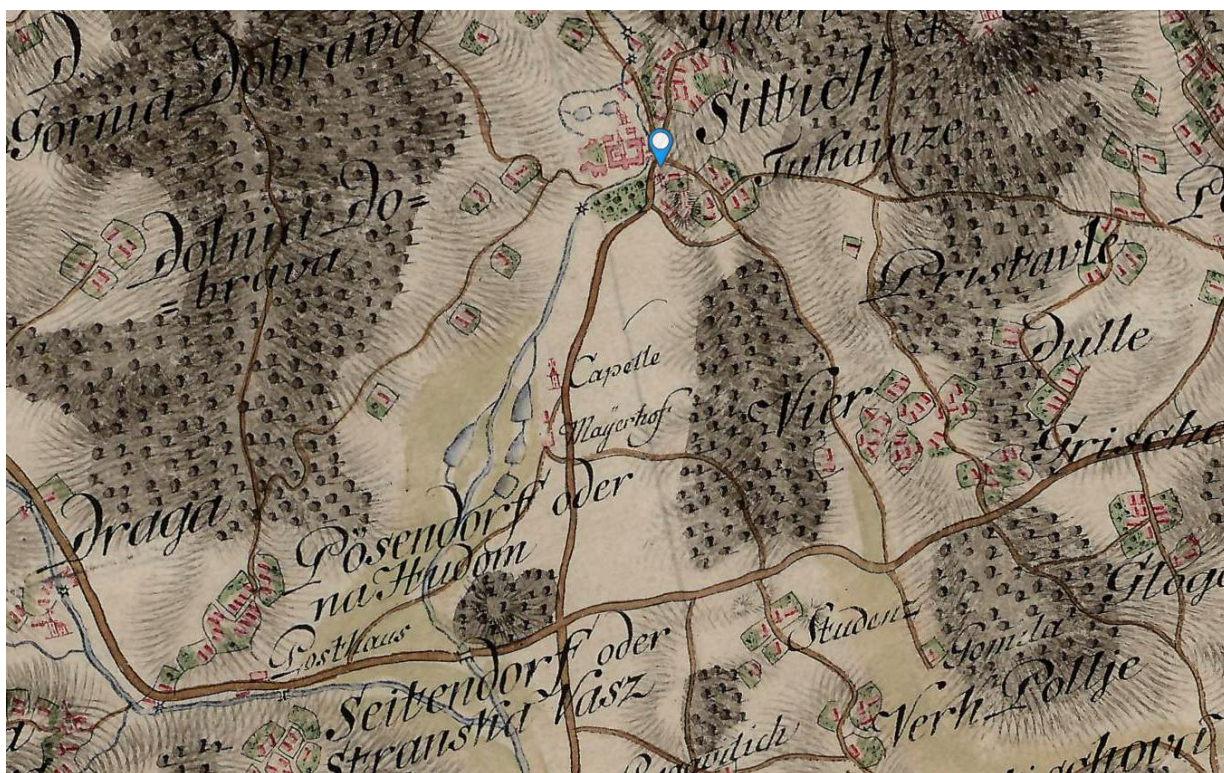 d.
Gornia Dobrava
Sittich
Dolnia Do=
= brava
Pristavle
Dulle
Capelle
Mayerhof
Vier
Grische
Draga
Pösendorf oder
na Hudom
Posthaus
Studenz
Gomila
Seitendorf oder
Stranska Vasz
Verh Pollje